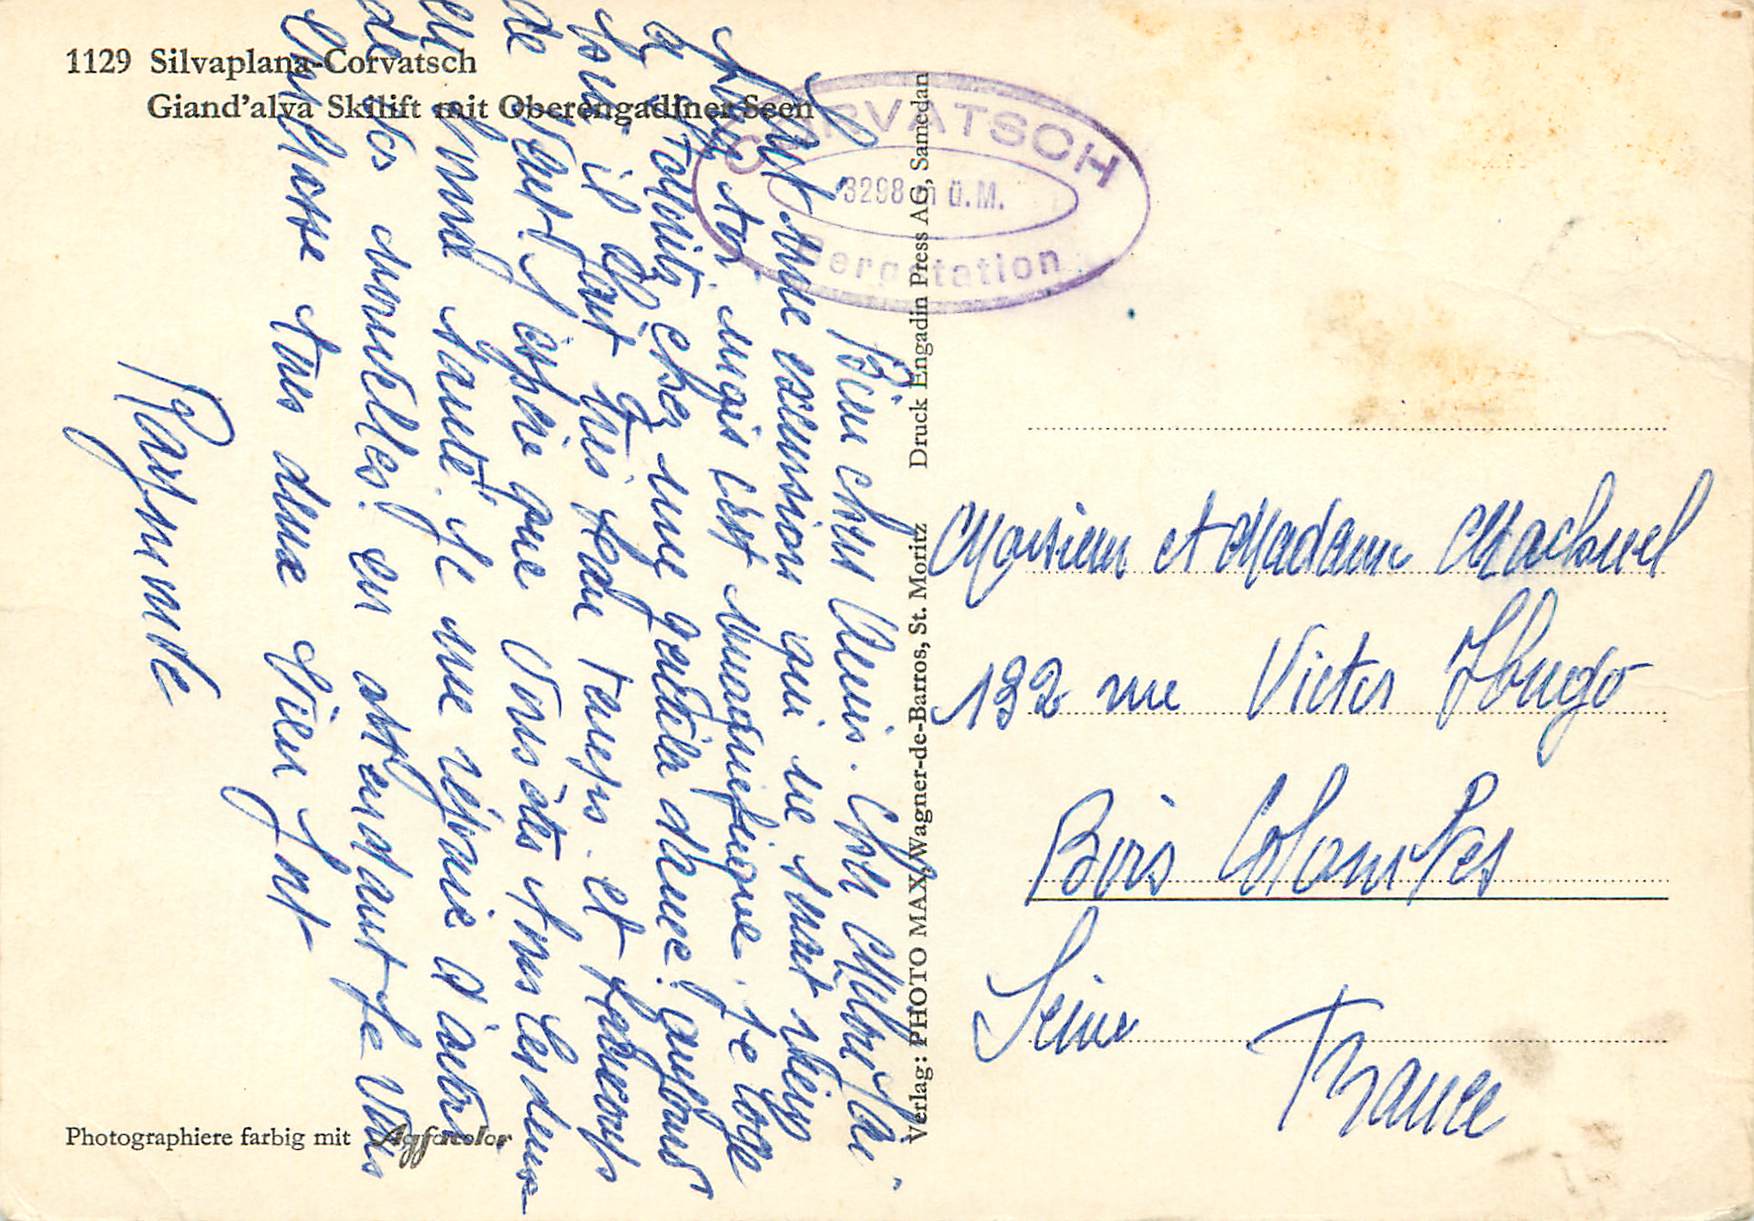 1129 Silvaplana-Corvatsch
Giand'alva Skilift mit Oberengadiner Seen
CORVATSCH
3298 m ü.M.
Bergstation
Bien chers Amis. Cher Mr
fait une excursion qui ne
neige est magnifique. je loge
à chez une gentille dame!
il fait très beau temps. et
vent j'espère que vous êtes tous les deux
en bonne santé. Je me réjouis d'avoir
de vos nouvelles! en attendant je vous
embrasse tous deux bien fort
Raymonde
Verlag: PHOTO MAX, Wagner-de-Barros, St. Moritz Druck Engadin Press AG, Samedan
Photographiere farbig mit Agfacolor
Monsieur et Madame
132 rue Victor Hugo
Bois Colombes
Seine
France